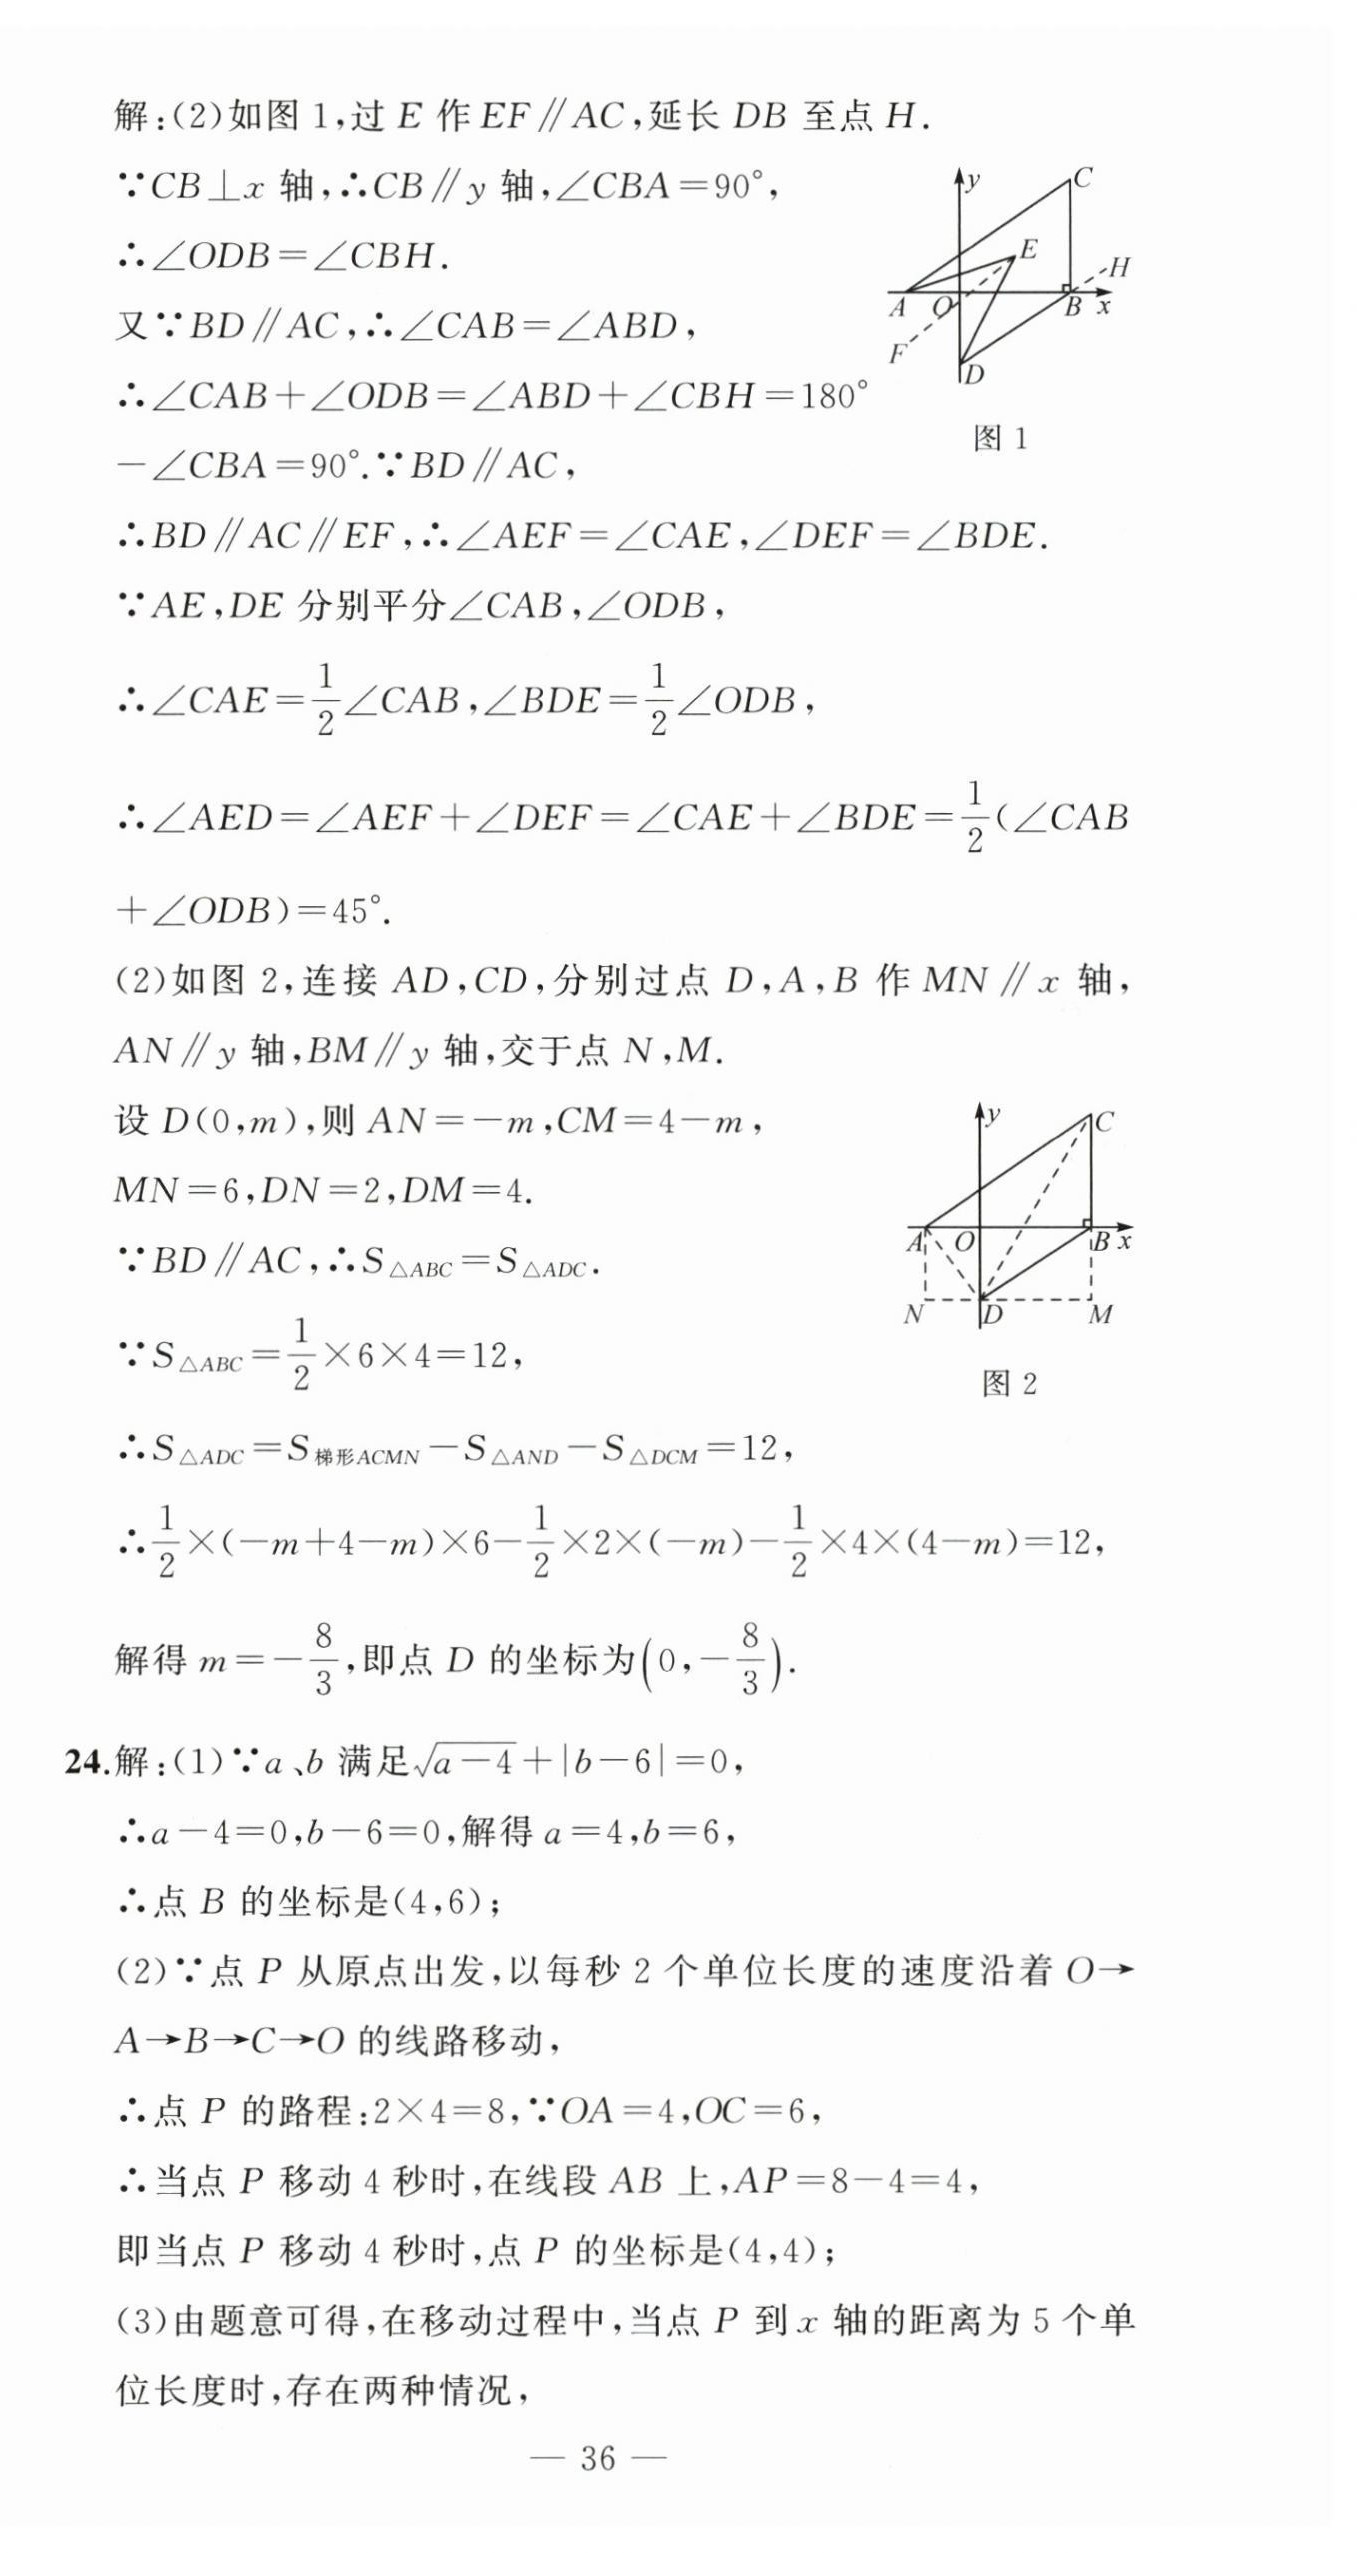 解:(2)如图 1,过 E 作 EF∥AC,延长 DB 至点 H.
∵CB⊥x 轴,∴CB∥y 轴,∠CBA=90°,
∴∠ODB=∠CBH.
又∵BD∥AC,∴∠CAB=∠ABD,
∴∠CAB+∠ODB=∠ABD+∠CBH=180°
-∠CBA=90°.∵BD∥AC,
y
C
E
H
A
O
B
x
F
D
图 1
∴BD∥AC∥EF,∴∠AEF=∠CAE,∠DEF=∠BDE.
∵AE,DE 分别平分∠CAB,∠ODB,
∴∠CAE=1/2∠CAB,∠BDE=1/2∠ODB,
∴∠AED=∠AEF+∠DEF=∠CAE+∠BDE=1/2(∠CAB
+∠ODB)=45°.
(2)如图 2,连接 AD,CD,分别过点 D,A,B 作 MN∥x 轴,
AN∥y 轴,BM∥y 轴,交于点 N,M.
设 D(0,m),则 AN=-m,CM=4-m,
MN=6,DN=2,DM=4.
∵BD∥AC,∴S△ABC=S△ADC.
∵S△ABC=1/2×6×4=12,
y
C
A
O
B
x
N
D
M
图 2
∴S△ADC=S梯形ACMN-S△AND-S△DCM=12,
∴1/2×(-m+4-m)×6-1/2×2×(-m)-1/2×4×(4-m)=12,
解得 m=-8/3,即点 D 的坐标为(0,-8/3).
24.解:(1)∵a、b 满足√(a-4)+|b-6|=0,
∴a-4=0,b-6=0,解得 a=4,b=6,
∴点 B 的坐标是(4,6);
(2)∵点 P 从原点出发,以每秒 2 个单位长度的速度沿着 O→
A→B→C→O 的线路移动,
∴点 P 的路程:2×4=8,∵OA=4,OC=6,
∴当点 P 移动 4 秒时,在线段 AB 上,AP=8-4=4,
即当点 P 移动 4 秒时,点 P 的坐标是(4,4);
(3)由题意可得,在移动过程中,当点 P 到 x 轴的距离为 5 个单
位长度时,存在两种情况,
— 36 —